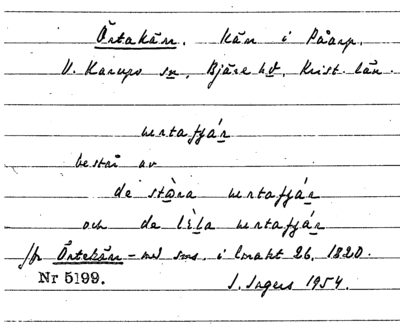 Örtakärr. Kärr i Påarp,
V. Karups sn, Bjäre hd, Krist. län.
urtafjár
bestå av
de stòra urtafjár
och de lèla urtafjár
jfr Örtekärr – med sms. i lmakt 26, 1820.
Nr 5199. I. Ingers 1954.